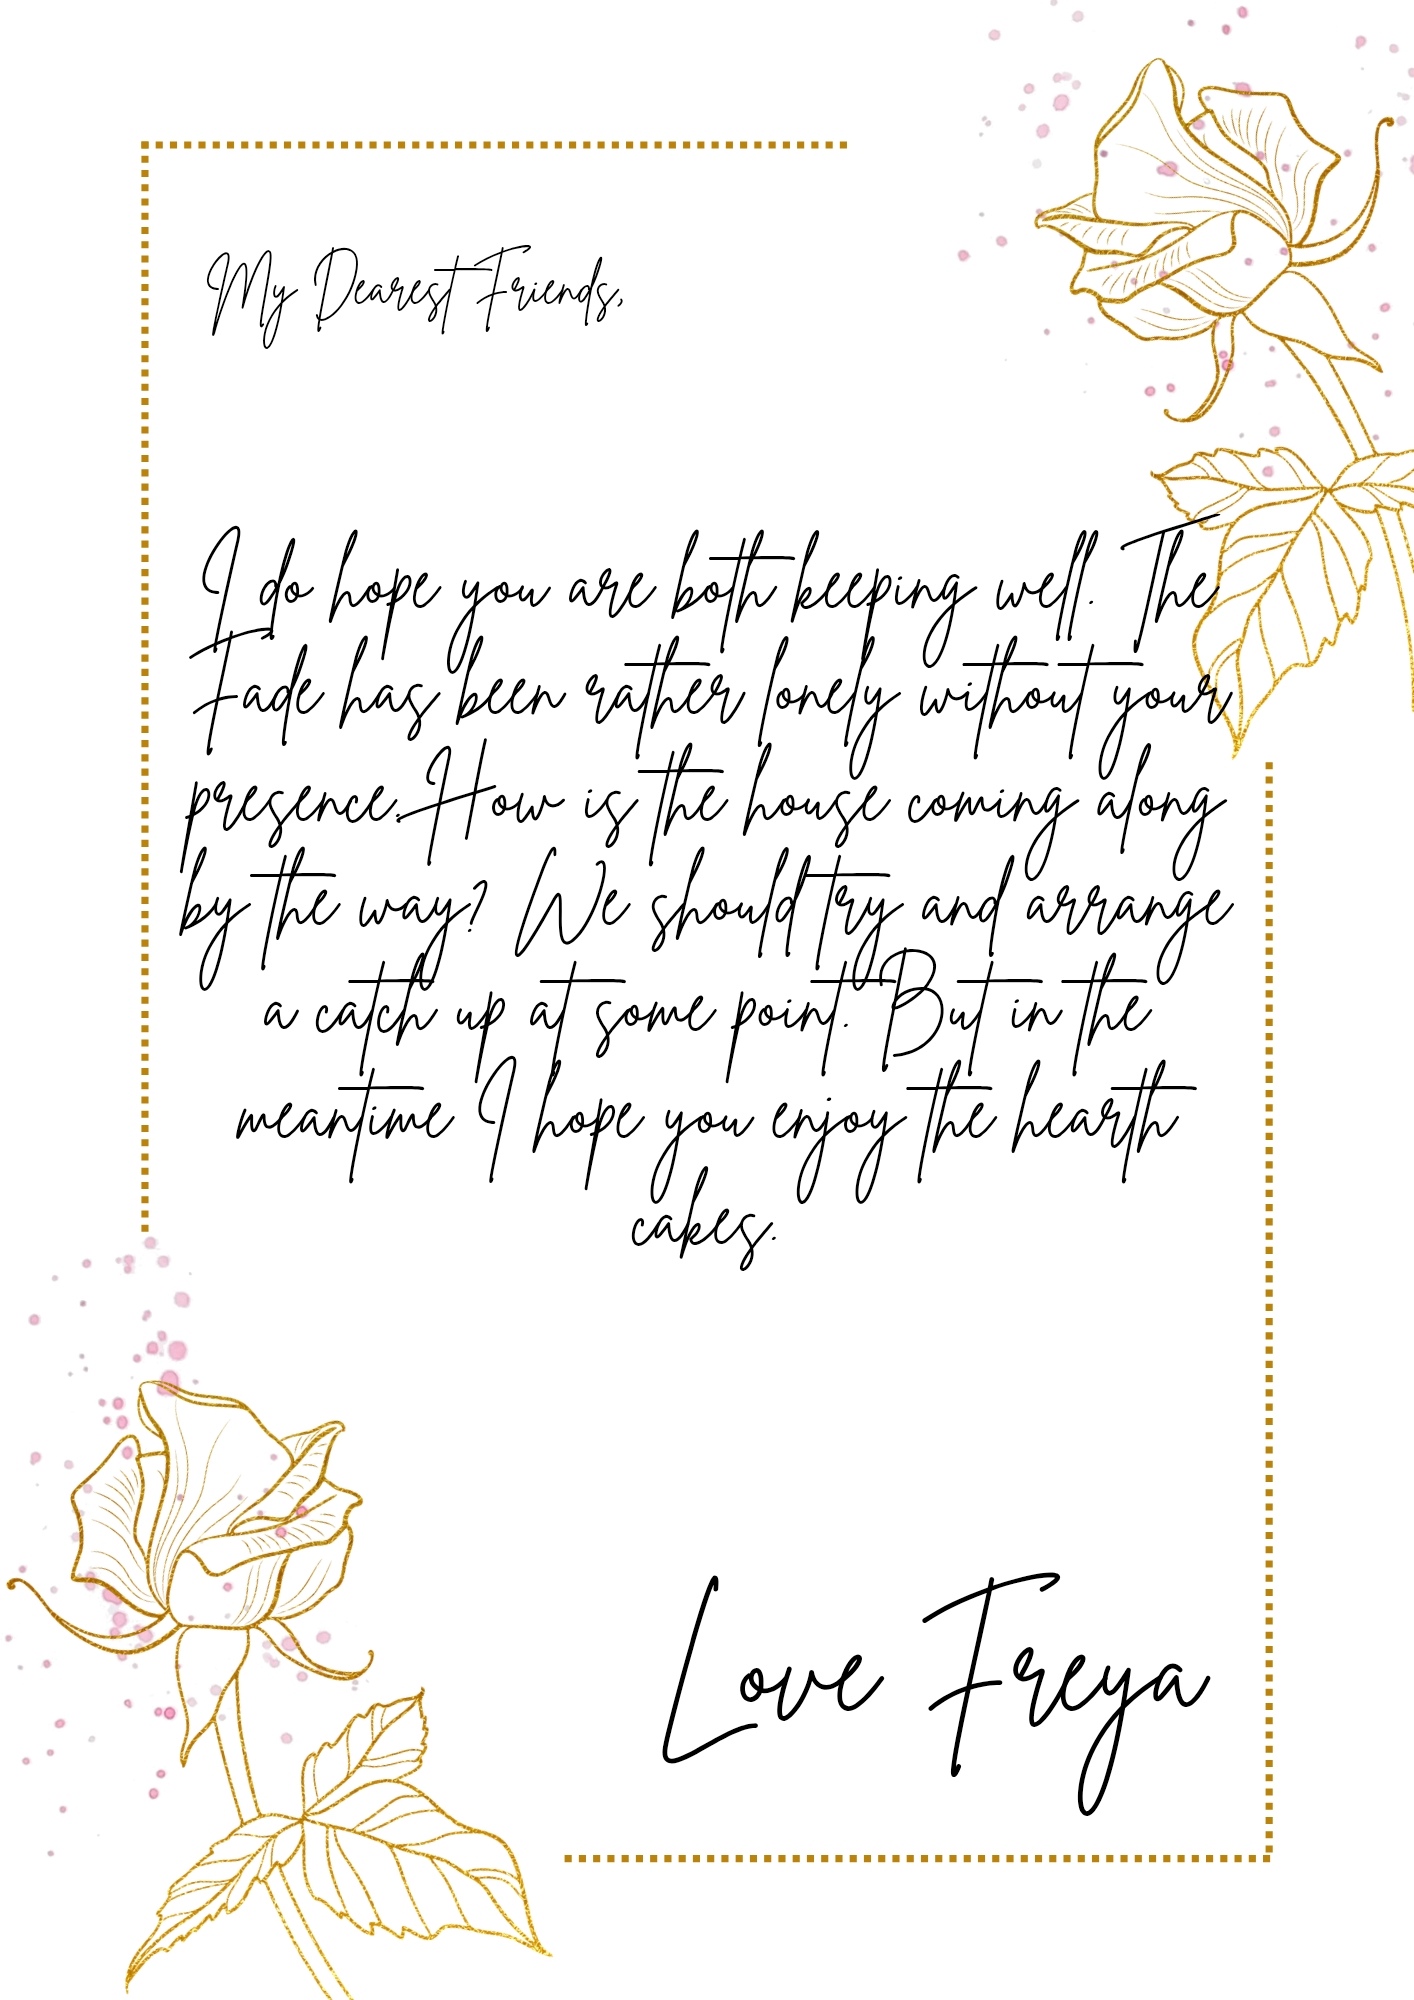 My Dearest Friends,
I do hope you are both keeping well. The
Fade has been rather lonely without your
presence. How is the house coming along
by the way? We should try and arrange
a catch up at some point. But in the
meantime I hope you enjoy the hearth
cakes.
Love Freya